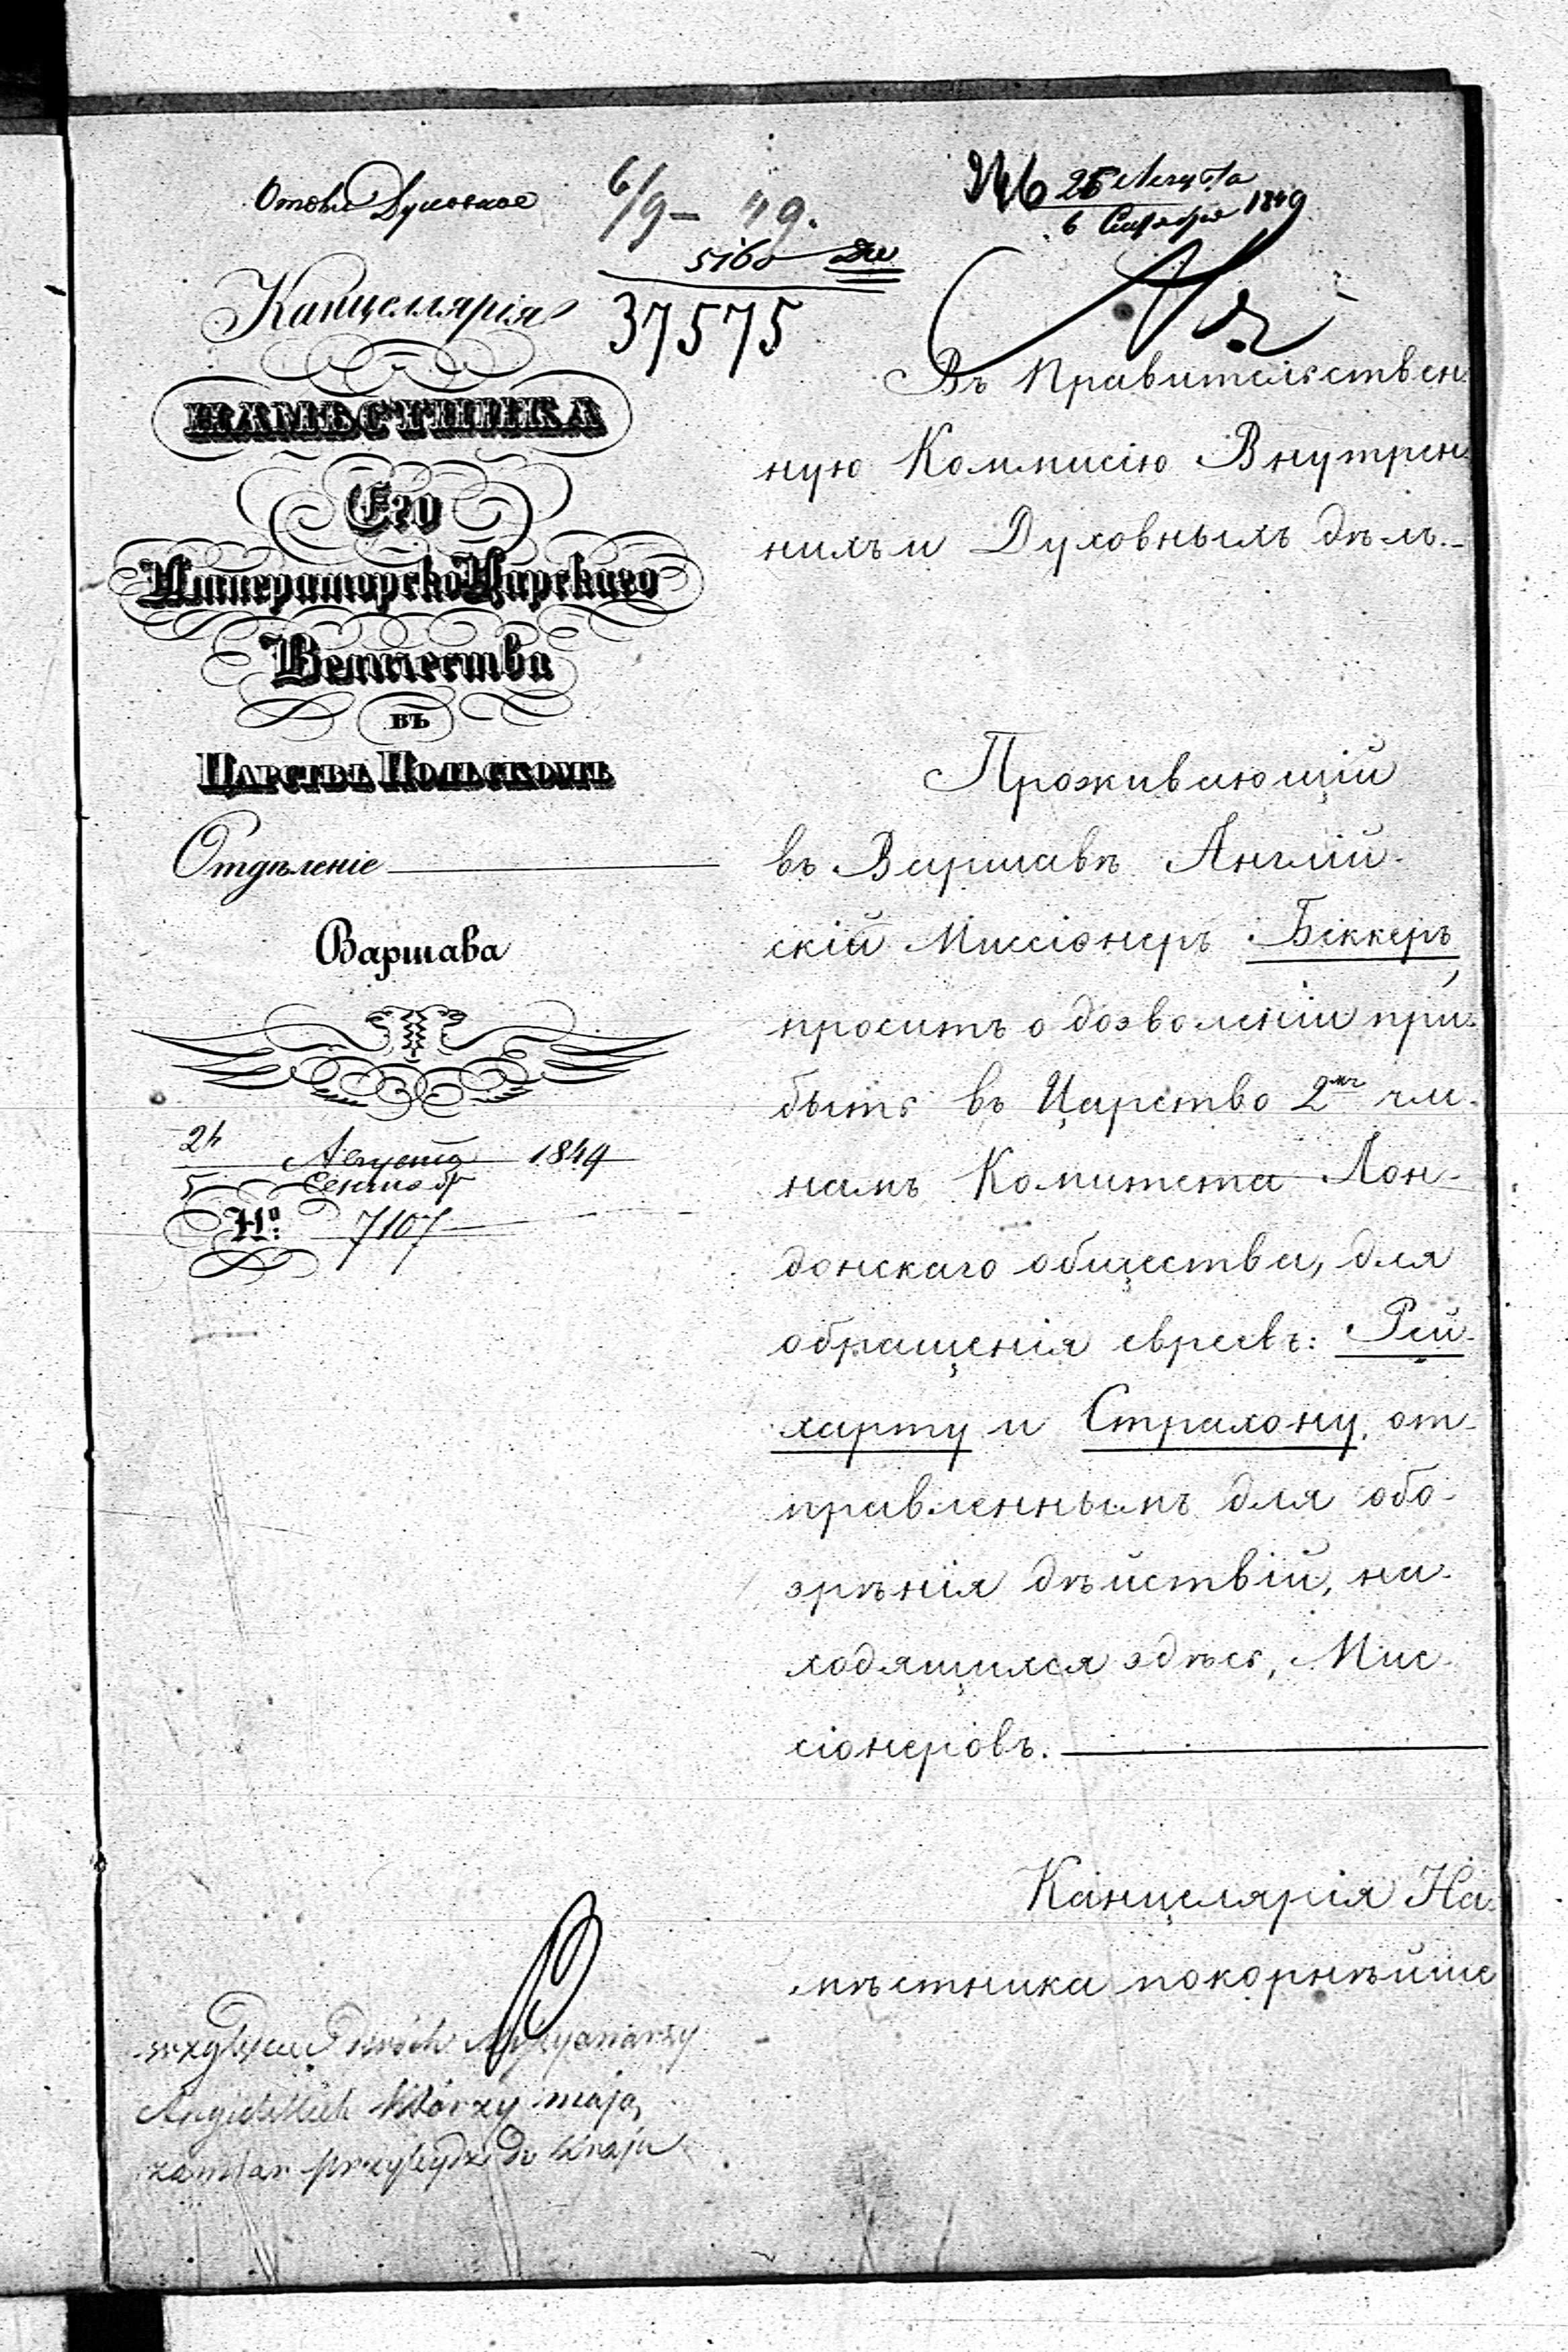 6/9 – 49.
246 25 Августа
6 Сентября 1849
5160
37575
Канцеллярія
НАМѢСТНИКА
Его
Императорско Царскаго
Величества
въ
Царствѣ Польскомъ
Отдѣленіе
Варшава
24 Августа 1849
5 Сентяб
№ 7107
Въ Правительствен
ную Коммисію Внутрен
нихъ и Духовныхъ дѣлъ.
Проживающій
въ Варшавѣ Англій-
скій Миссіонеръ Беккеръ,
проситъ о дозволеніи при-
быть въ Царство 2мъ чле-
намъ Комитета Лон-
донскаго общества, для
обращенія евреевъ: Рей-
харту и Страхону, от-
правленнымъ для обо-
зрѣнія дѣйствій, на-
ходящихся здѣсь, Мис-
сіонеровъ.
Канцелярія На-
мѣстника покорнѣйше
dwóch Missyonarzy
Angielskich którzy mają
zamiar do kraju